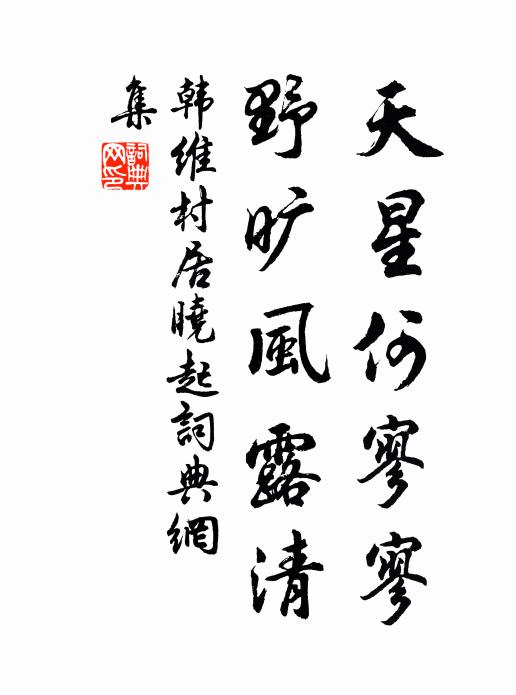 天星何寥寥
野旷風露清
韩維村居曉起詞典網
集
詞典
网印